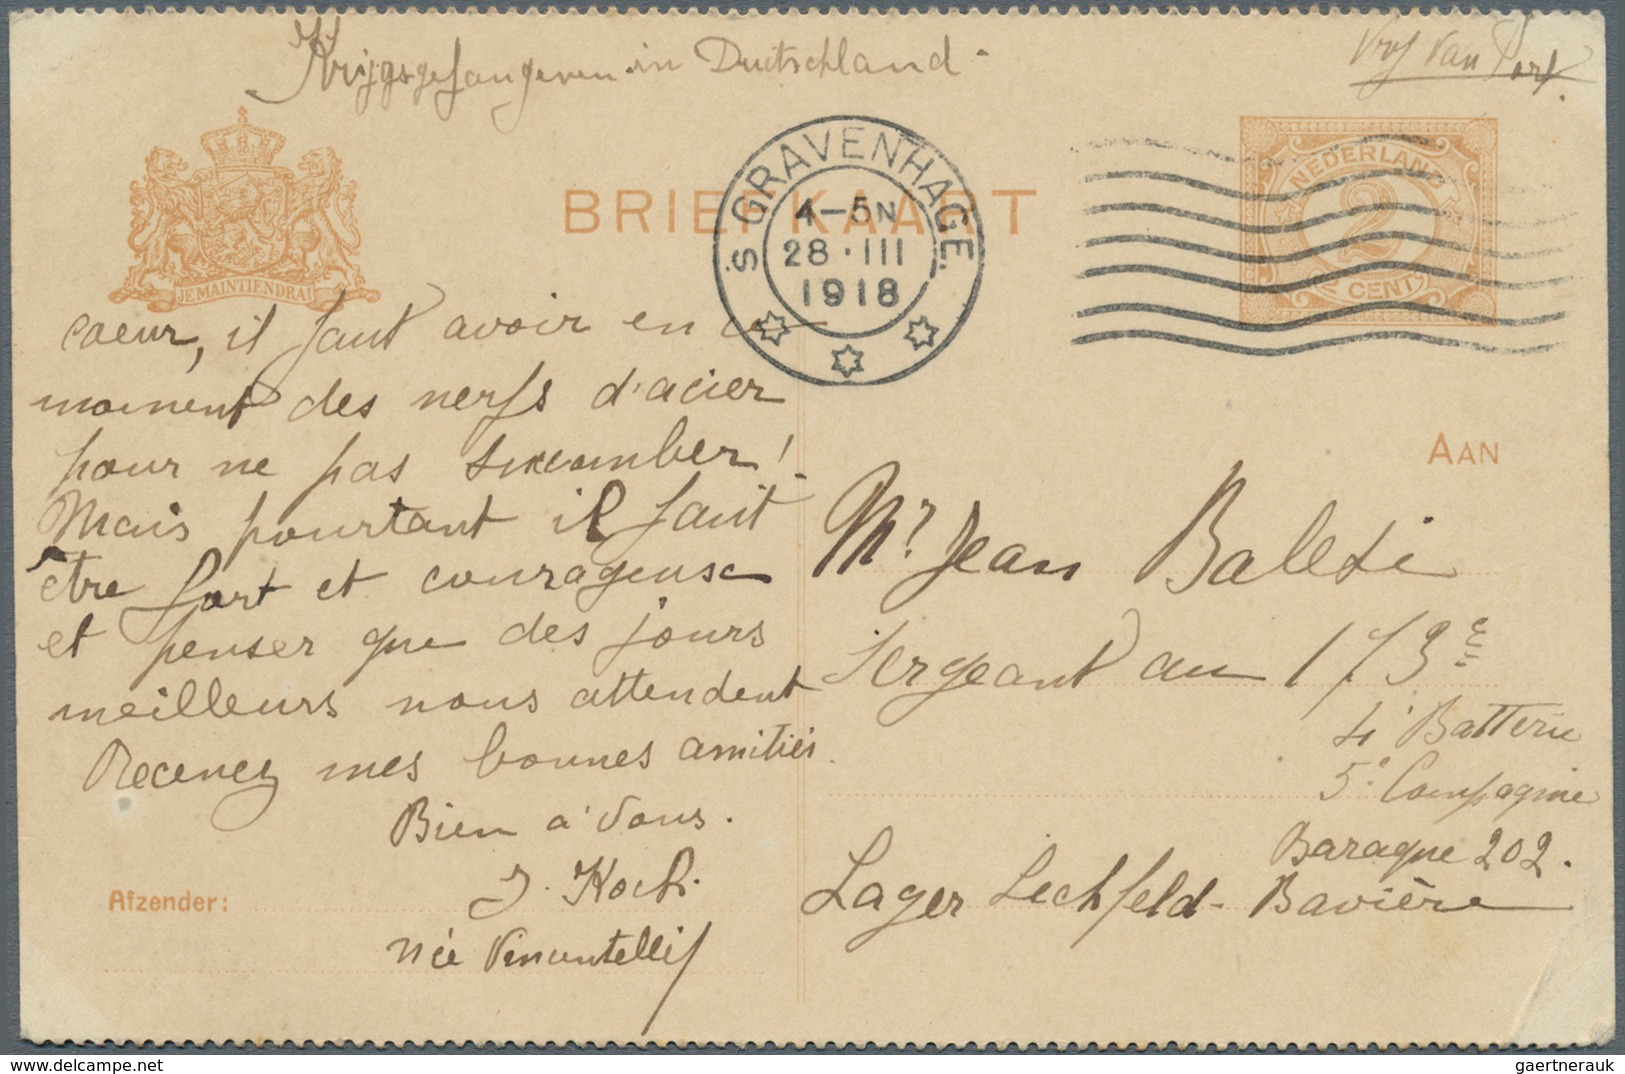 Krijgsgefangenen in Duitschland -
Vrij van Port.
'S GRAVENHAGE.
4-5N
28·III
1918
BRIEFKAART
NEDERLAND
2
2 CENT
JE MAINTIENDRAI
coeur, il faut avoir en ce
moment des nerfs d'acier
pour ne pas succomber!
Mais pourtant il faut
être fort et courageuse
et penser que des jours
meilleurs nous attendent
Recevez mes bonnes amitiés.
Bien à vous.
J. Koch.
née
Afzender:
AAN
Mr Jean Balesi
Sergeant au 173e
4e Batterie
5e Compagnie
Baraque 202.
Lager Lechfeld - Bavière
delcampe.net
gaertnerauk